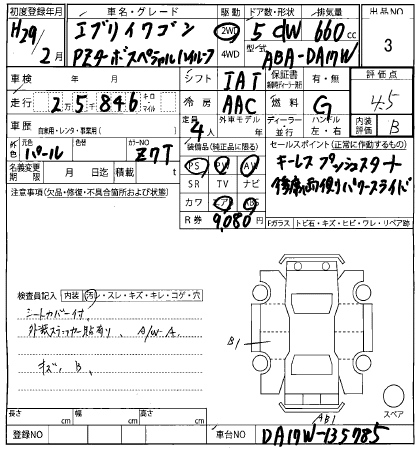 初度登録年月 車名・グレード 駆動 ドア数・形状 排気量 出品NO
H29年 2月 エブリイワゴン 2WD 5 DW 660cc 3
PZターボスペシャルハイルーフ 4WD 型式 ABA-DA17W
車検 年 月 シフト IAT 保証書 有・無 評価点
走行 2万5,846 キロ・マイル 冷房 AAC 燃料 G 4.5
車歴 自家用・レンタ・事業用( ) 定員 4人 外車モデル 年 ディーラー・ ハンドル 左・右 内装 B
色 元色 パール 色替 カラーNO Z7T 装備品(純正品に限る) セールスポイント(正常に作動するもの)
名義変更期限 月 日迄 積載 t PS PW AW キーレス プッシュスタート
注意事項(欠品・修復・不具合箇所および状態) SR TV ナビ 両側パワースライド
カワ エアB ABS
R券 9,080円 Fガラス トビ石・キズ・ヒビ・ワレ・リペア跡
検査員記入 内装 汚レ・スレ・キズ・キレ・コゲ・穴
シートカバー付。
外装ステッカー貼有り、A/W-A.
キズ、B.
B1
スペア
AB1
長さ cm 幅 cm 高さ cm
登録NO 車台NO DA17W-135785